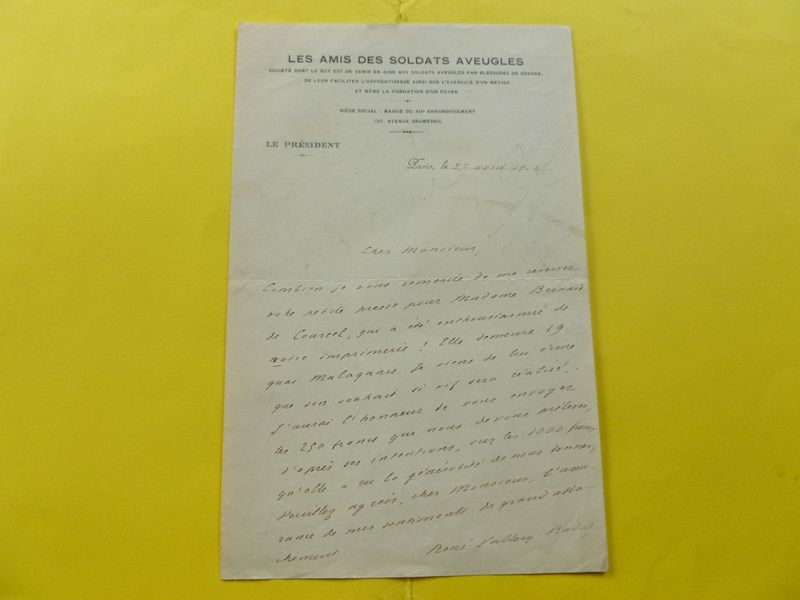 LES AMIS DES SOLDATS AVEUGLES
SOCIÉTÉ DONT LE BUT EST DE VENIR EN AIDE AUX SOLDATS AVEUGLES PAR BLESSURES DE GUERRE,
DE LEUR FACILITER L'APPRENTISSAGE AINSI QUE L'EXERCICE D'UN MÉTIER
ET MÊME LA FONDATION D'UN FOYER
SIÈGE SOCIAL : MAIRIE DU XIIe ARRONDISSEMENT
130, AVENUE DAUMESNIL
LE PRÉSIDENT
Paris, le 27 avril
Cher Monsieur,
Combien je vous remercie de me réserver
votre petite presse pour Madame Bernard
de Courcel, qui a été enthousiasmée de
votre imprimerie ! Elle demeure 19
quai Malaquais. Je viens de lui écrire
que son souhait si vif sera réalisé.
J'aurai l'honneur de vous envoyer
les 250 francs que nous devons prélever,
d'après ses intentions, sur les 1000 francs
qu'elle a eu la générosité de nous donner,
Veuillez agréer, cher Monsieur, l'assu-
rance de mes sentiments de grand atta-
chement
René Vallery Radot